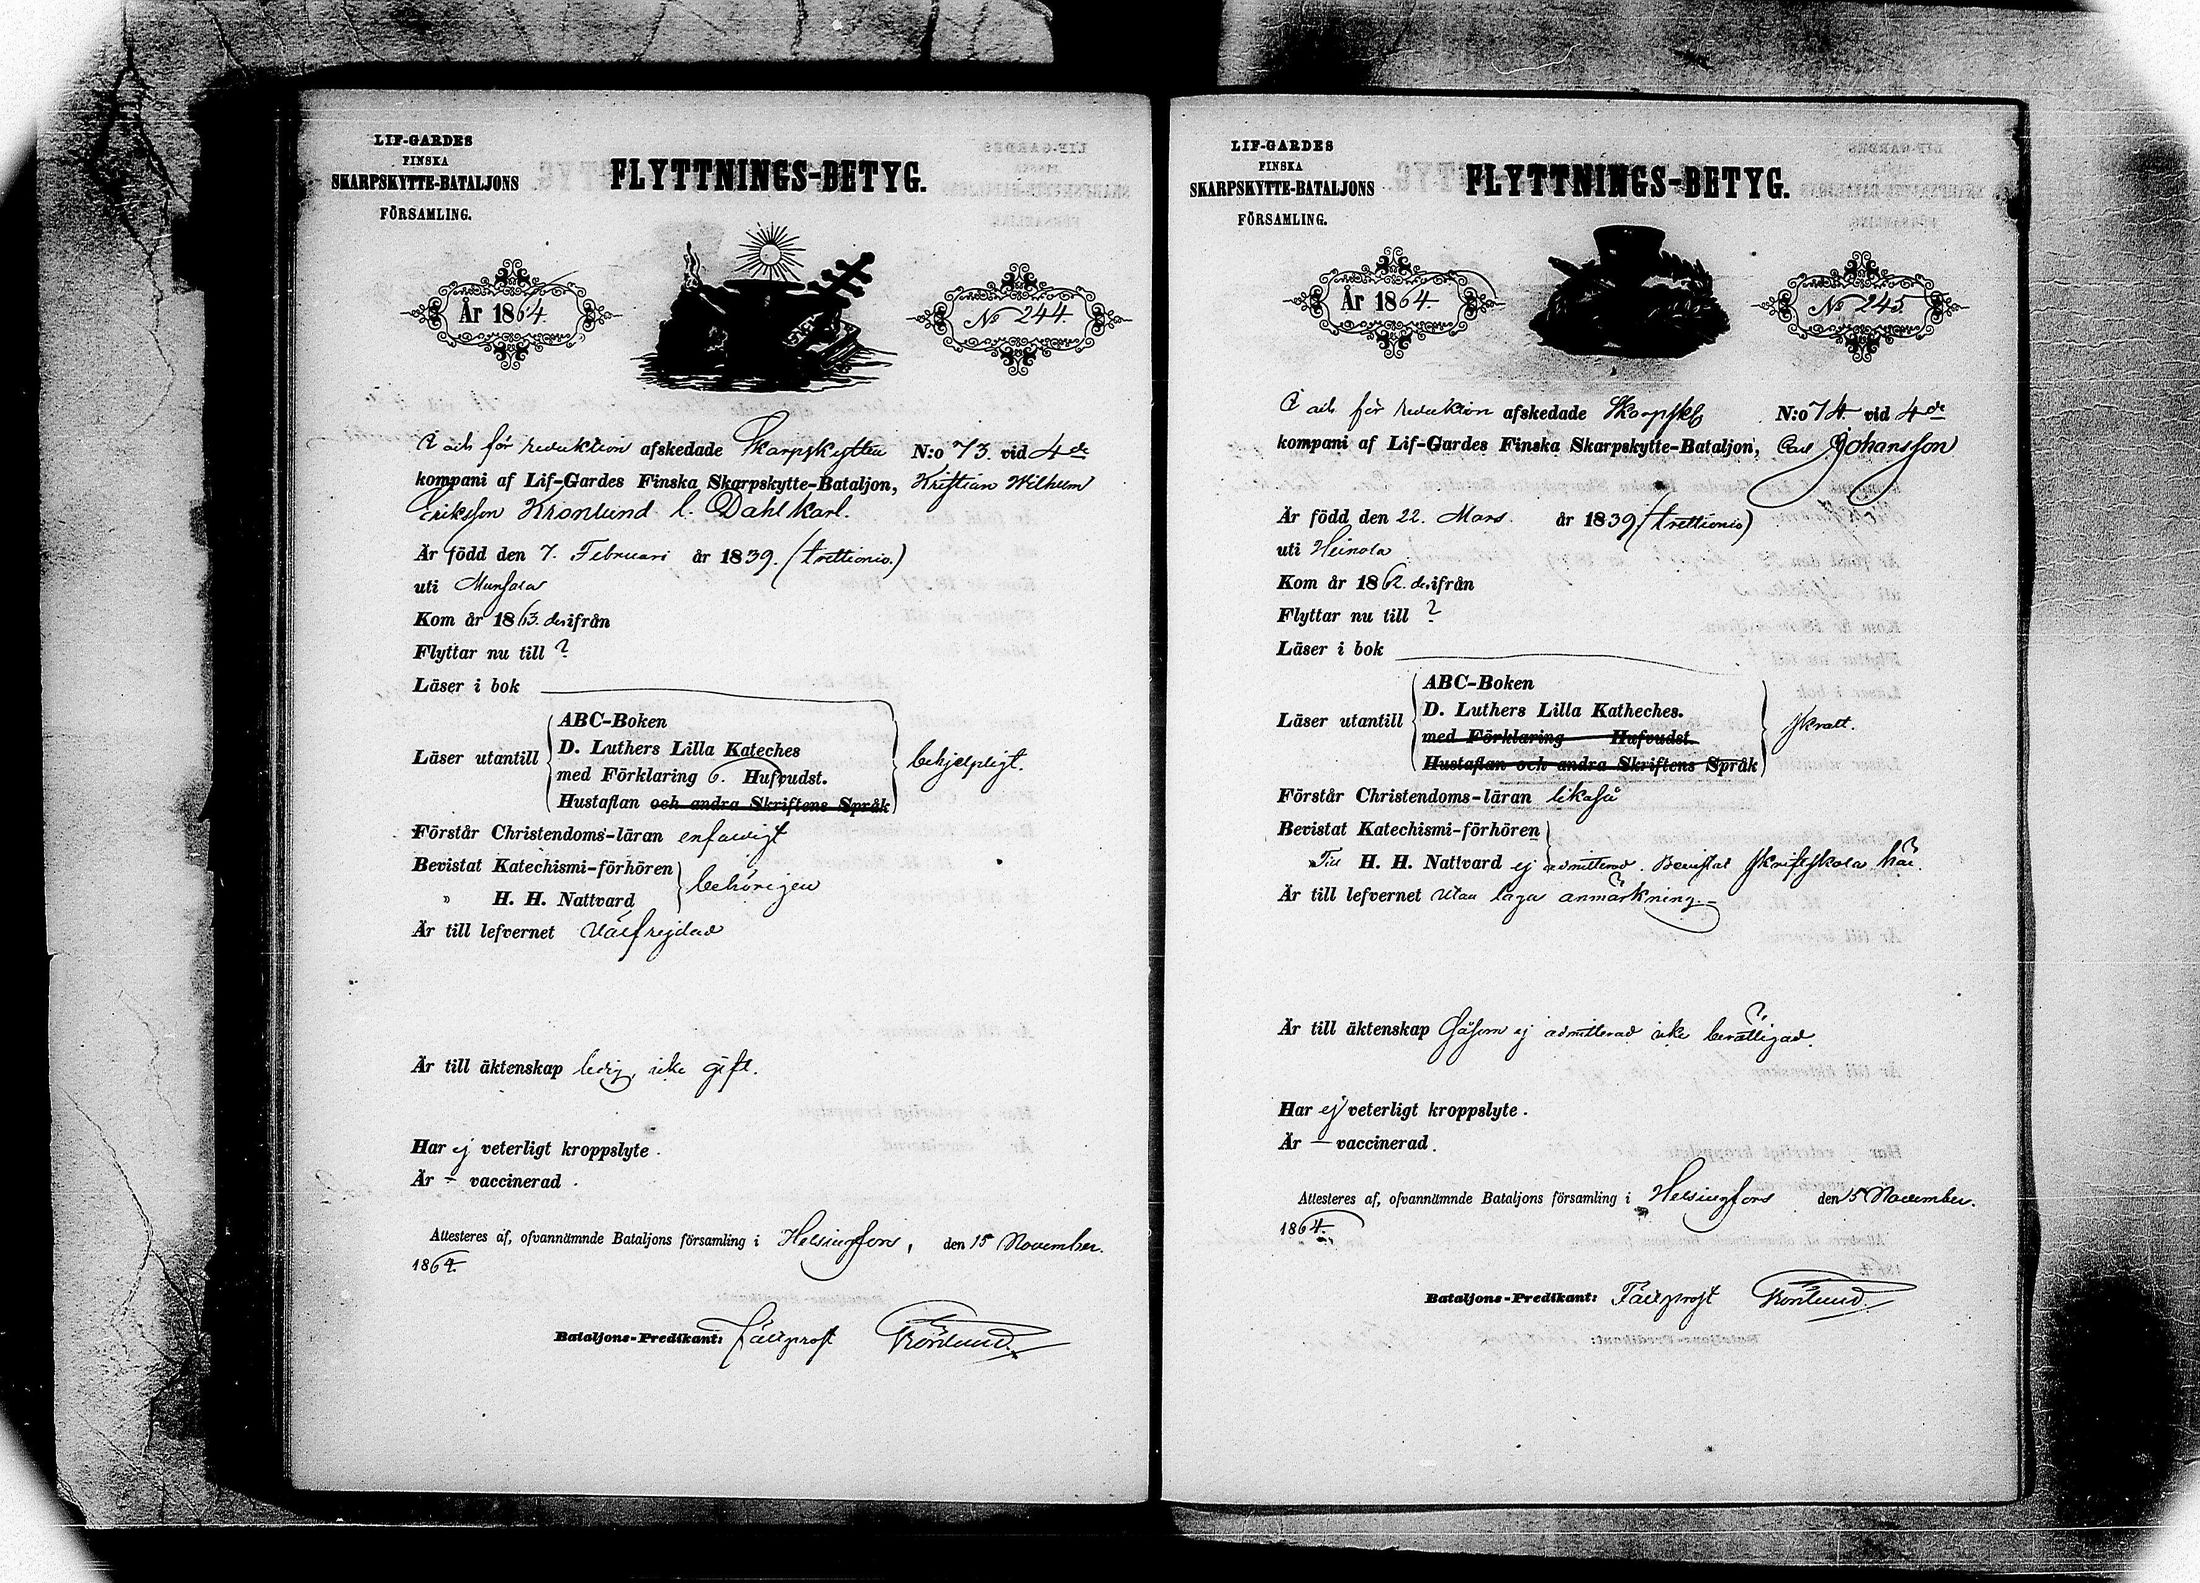 LIF-GARDES
FINSKA
SKARPSKYTTE-BATALJONS
FÖRSAMLING.
FLYTTNINGS-BETYG.
År 1864
No 244.
för reduktion afskedade Skarpskytten N:o 73. vid 4de
kompani af Lif-Gardes Finska Skarpskytte-Bataljon, Kristian Wilhelm
Eriksson Kronlund l. Dahlkarl.
Är född den 7. Februari år 1839. (trettionio.)
uti Munsala
Kom år 1863. derifrån
Flyttar nu till ?
Läser i bok
ABC-Boken
Läser utantill D. Luthers Lilla Kateches behjelpligt.
med Förklaring 6. Hufvudst.
Hustaflan och andra Skriftens Språk
Förstår Christendoms-läran enfaldigt
Bevistat Katechismi-förhören behörigen
" H. H. Nattvard
Är till lefvernet Välfrejdad
Är till äktenskap ledig, icke gift.
Har ej veterligt kroppslyte.
Är — vaccinerad.
Attesteres af, ofvannämnde Bataljons församling i Helsingfors, den 15 November.
1864.
Bataljons-Predikant: Fältprost
LIF-GARDES
FINSKA
SKARPSKYTTE-BATALJONS
FÖRSAMLING.
FLYTTNINGS-BETYG.
År 1864
No 245.
för reduktion afskedade Skarpsk N:o 74. vid 4de
kompani af Lif-Gardes Finska Skarpskytte-Bataljon, Carl Johansson
Är född den 22. Mars. år 1839 (trettionio)
uti Heinola
Kom år 1862. derifrån
Flyttar nu till ?
Läser i bok
ABC-Boken
Läser utantill D. Luthers Lilla Katheches. skralt.
med Förklaring Hufvudst.
Hustaflan och andra Skriftens Språk
Förstår Christendoms-läran likaså
Bevistat Katechismi-förhören
Till H. H. Nattvard ej admitterad. Bevistat skriftskola här.
Är till lefvernet utan laga anmärkning.
Är till äktenskap såsom ej admitterad icke berättigad.
Har ej veterligt kroppslyte.
Är — vaccinerad.
Attesteres af, ofvannämnde Bataljons församling i Helsingfors den 15 November.
1864.
Bataljons-Predikant: Fältprost